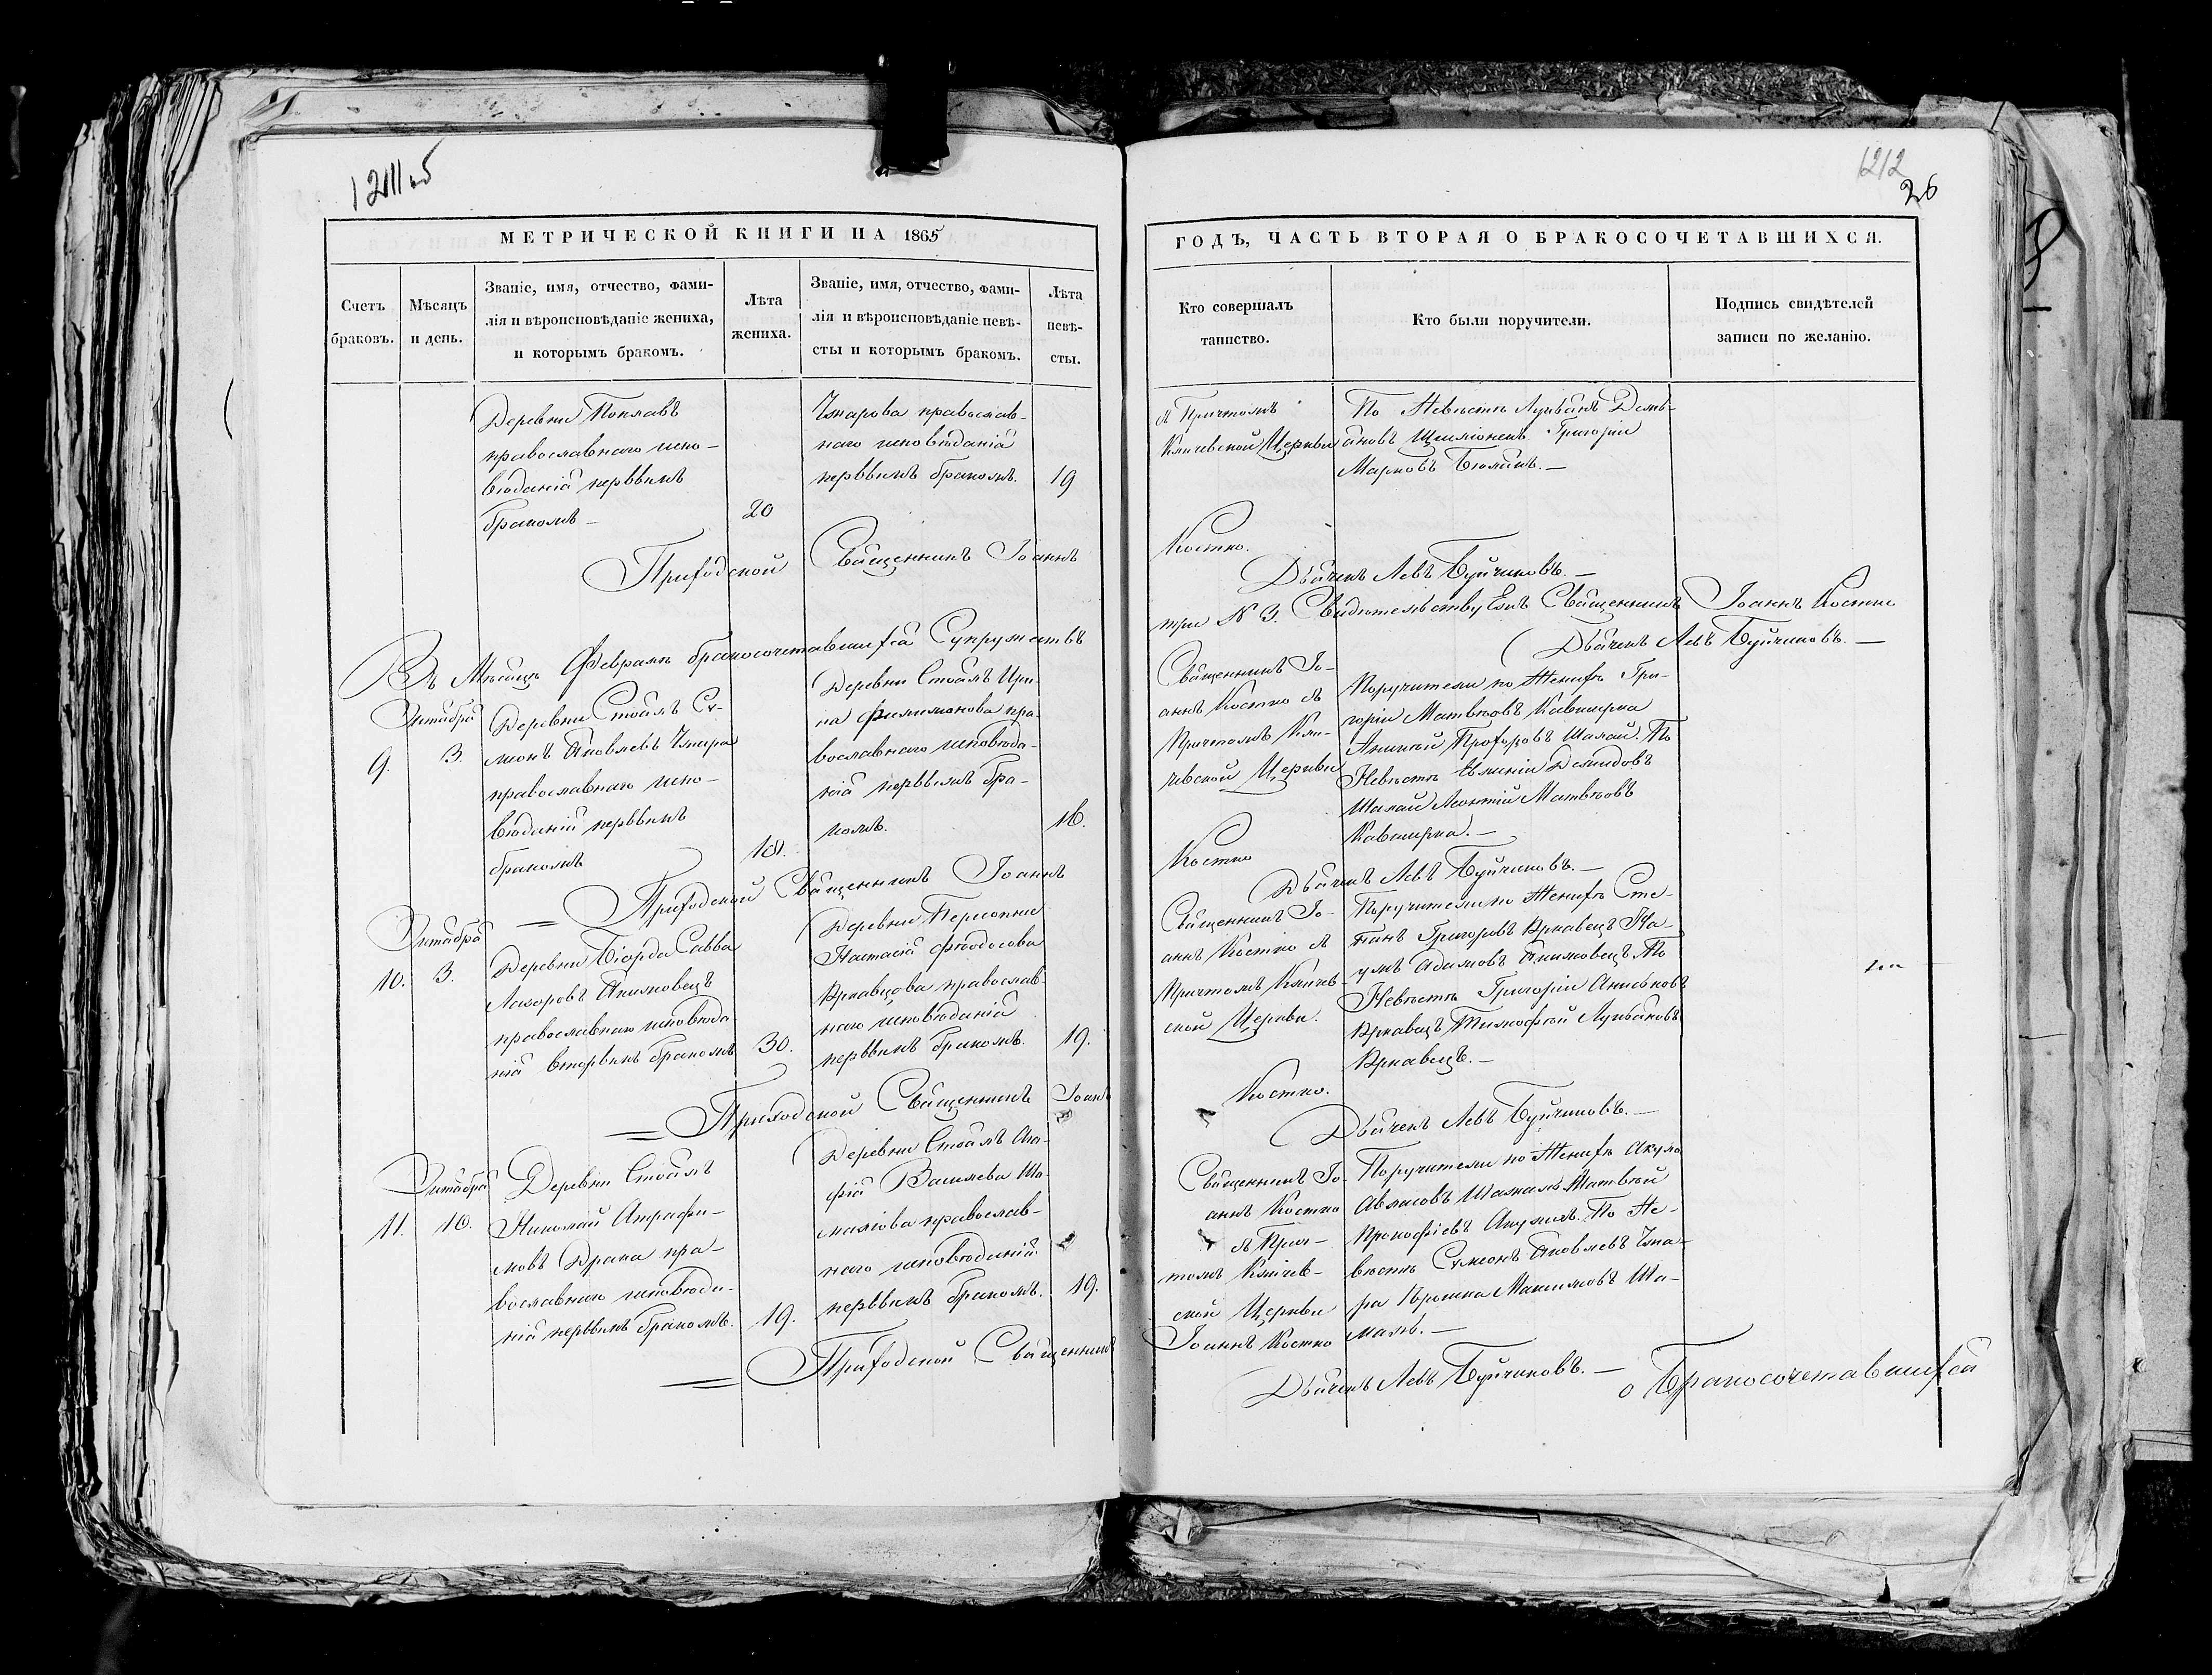 1211 об
1212
26
МЕТРИЧЕСКОЙ КНИГИ НА 1865
ГОДЪ, ЧАСТЬ ВТОРАЯ О БРАКОСОЧЕТАВШИХСЯ.
Счетъ
браковъ.
Мѣсяцъ
и день.
Званіе, имя, отчество, фами-
лія и вѣроисповѣданіе жениха,
и которымъ бракомъ.
Лѣта
жениха.
Званіе, имя, отчество, фами-
лія и вѣроисповѣданіе невѣ-
сты и которымъ бракомъ.
Лѣта
невѣ-
сты.
Кто совершалъ
таинство.
Кто были поручители.
Подпись свидѣтелей
записи по желанію.
Деревни Поплавъ
православнаго испо-
вѣданія первымъ
бракомъ
20
Чмарова православ-
наго исповѣданія
первымъ бракомъ.
19
съ Причтомъ
Кличевской Церкви
По Невѣстѣ Лукьянъ Демь-
яновъ Григорій
Марковъ
Приходской Священникъ Іоаннъ
Костко.
Дьячекъ Левъ Буйчиковъ.
Въ Мѣсяцѣ Февралѣ бракосочетавшихся Супружествъ
три № 3. Свидѣтельствуемъ Священникъ Іоаннъ Костко
Дьячекъ Левъ Буйчиковъ.
9.
Октября
3.
Деревни Стоялъ Се-
меонъ Яковлевъ Чмара
православнаго испо-
вѣданія первымъ
бракомъ
18.
Деревни Стоялъ Ири-
на Филимонова пра-
вославнаго исповѣда-
нія первымъ бра-
комъ.
16.
Священникъ Іо-
аннъ Костко съ
Причтомъ Кли-
чевской Церкви
Поручители по Женихѣ Гри-
горій Матвѣевъ Кавшырка
Прохоровъ Шалай. По
Невѣстѣ Демидовъ
Шалай Леонтій Матвѣевъ
Кавшырка.
Приходской Священникъ Іоаннъ
Костко
Дьячекъ Левъ Буйчиковъ.
10.
Октября
3.
Деревни Біорда Савва
Лазоровъ Акимовецъ
православнаго исповѣда
нія вторымъ бракомъ
30.
Деревни
Настасія Ѳеодосова
православ-
наго исповѣданія
первымъ бракомъ.
19.
Священникъ Іо-
аннъ Костко съ
Причтомъ Кличев-
ской Церкви.
Поручители по Женихѣ Сте-
панъ Григоровъ На-
умъ Адамовъ Акимовецъ По
Невѣстѣ Григорій
Тимофей Лукьяновъ
Приходской Священникъ Іоаннъ
Костко.
Дьячекъ Левъ Буйчиковъ.
11.
Октября
10.
Деревни Стоялъ
Николай
Драка пра-
вославнаго исповѣда-
нія первымъ бракомъ.
19.
Деревни Стоялъ Ага-
фія Васильева Ша-
малова православ-
наго исповѣданія
первымъ бракомъ.
19.
Священникъ Іо-
аннъ Костко
съ Прич-
томъ Кличев-
ской Церкви
Поручители по Женихѣ Акула
Матвѣй
Прокофіевъ По Не-
вѣстѣ Семеонъ Яковлевъ Чма-
ра Максимовъ Ша-
малъ.
Приходской Священникъ
Іоаннъ Костко
Дьячекъ Левъ Буйчиковъ.
о Бракосочетавшихся